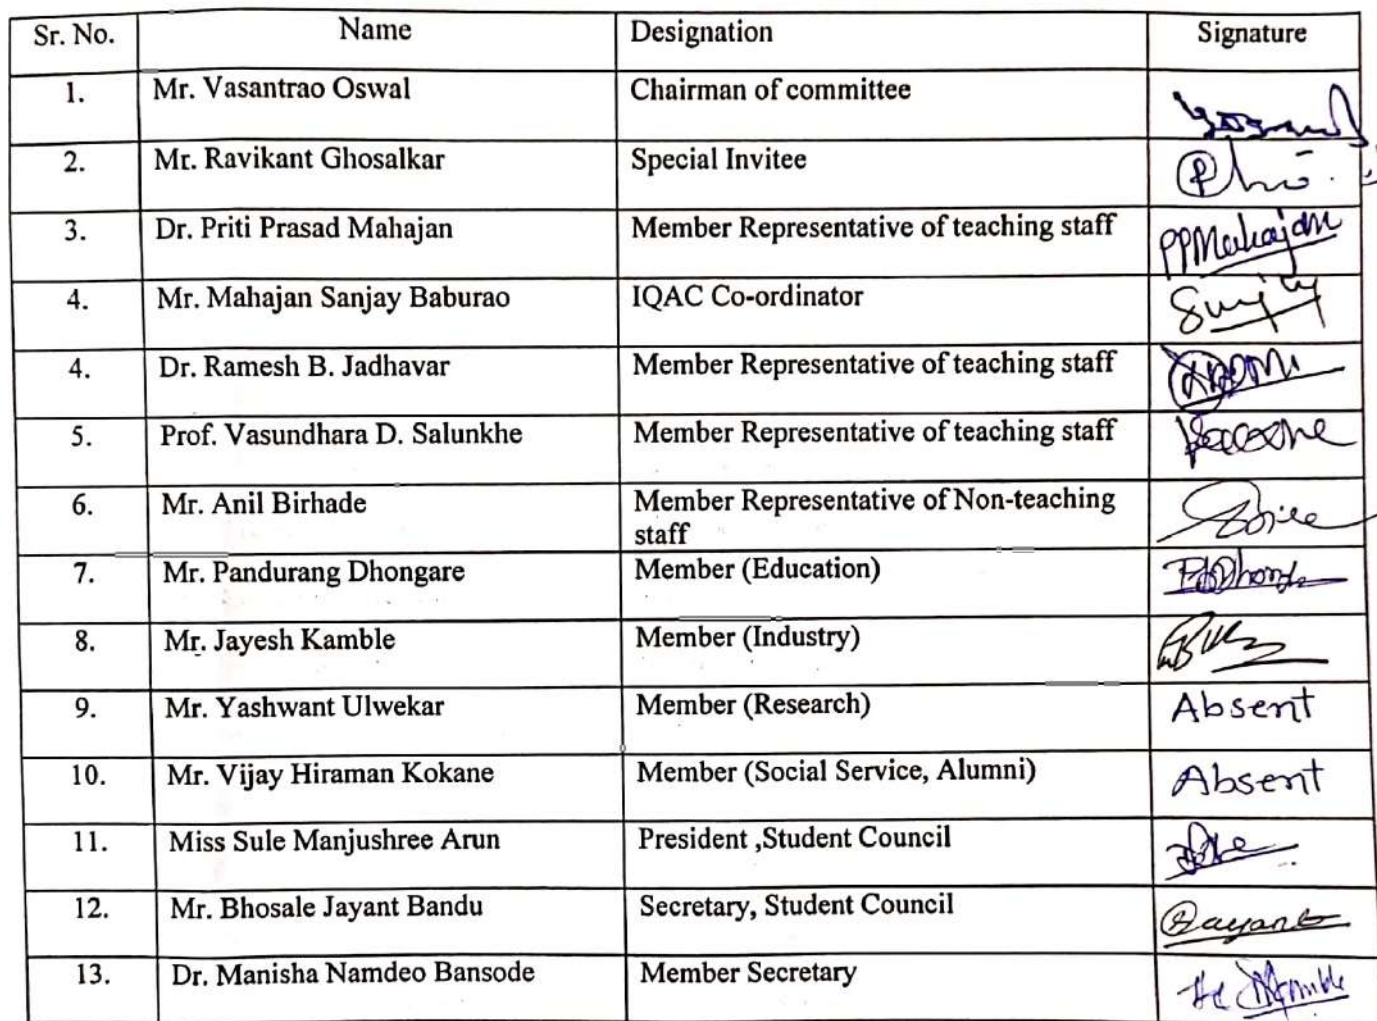 Sr. No. Name Designation Signature
1. Mr. Vasantrao Oswal Chairman of committee
2. Mr. Ravikant Ghosalkar Special Invitee
3. Dr. Priti Prasad Mahajan Member Representative of teaching staff PPMahajan
4. Mr. Mahajan Sanjay Baburao IQAC Co-ordinator
4. Dr. Ramesh B. Jadhavar Member Representative of teaching staff
5. Prof. Vasundhara D. Salunkhe Member Representative of teaching staff
6. Mr. Anil Birhade Member Representative of Non-teaching
staff
7. Mr. Pandurang Dhongare Member (Education)
8. Mr. Jayesh Kamble Member (Industry)
9. Mr. Yashwant Ulwekar Member (Research) Absent
10. Mr. Vijay Hiraman Kokane Member (Social Service, Alumni) Absent
11. Miss Sule Manjushree Arun President ,Student Council
12. Mr. Bhosale Jayant Bandu Secretary, Student Council
13. Dr. Manisha Namdeo Bansode Member Secretary